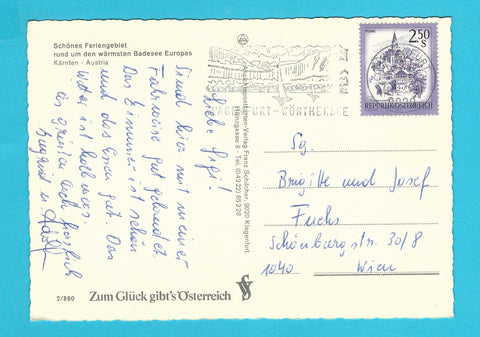 Schönes Feriengebiet
rund um den wärmsten Badesee Europas
Kärnten · Austria
Liebe Gigi!
Sind hier mit meiner
Fahrweise gut gelandet.
Das Zimmer ist schön
und das Essen gut. Das
Wetter ist halbwegs.
Es grüßen Euch herzlich
Ingrid u. Adolf
2/890
Zum Glück gibt's Österreich
Alpenkunstkarten-Verlag Franz Schilcher, 9020 Klagenfurt,
Heinzgasse 8 - Tel. (04222) 85228
KLAGENFURT-WÖRTHERSEE
2.50
S
REPUBLIK ÖSTERREICH
Sg.
Brigitte und Josef
Fuchs
Schönburgstr. 30/8
1040 Wien